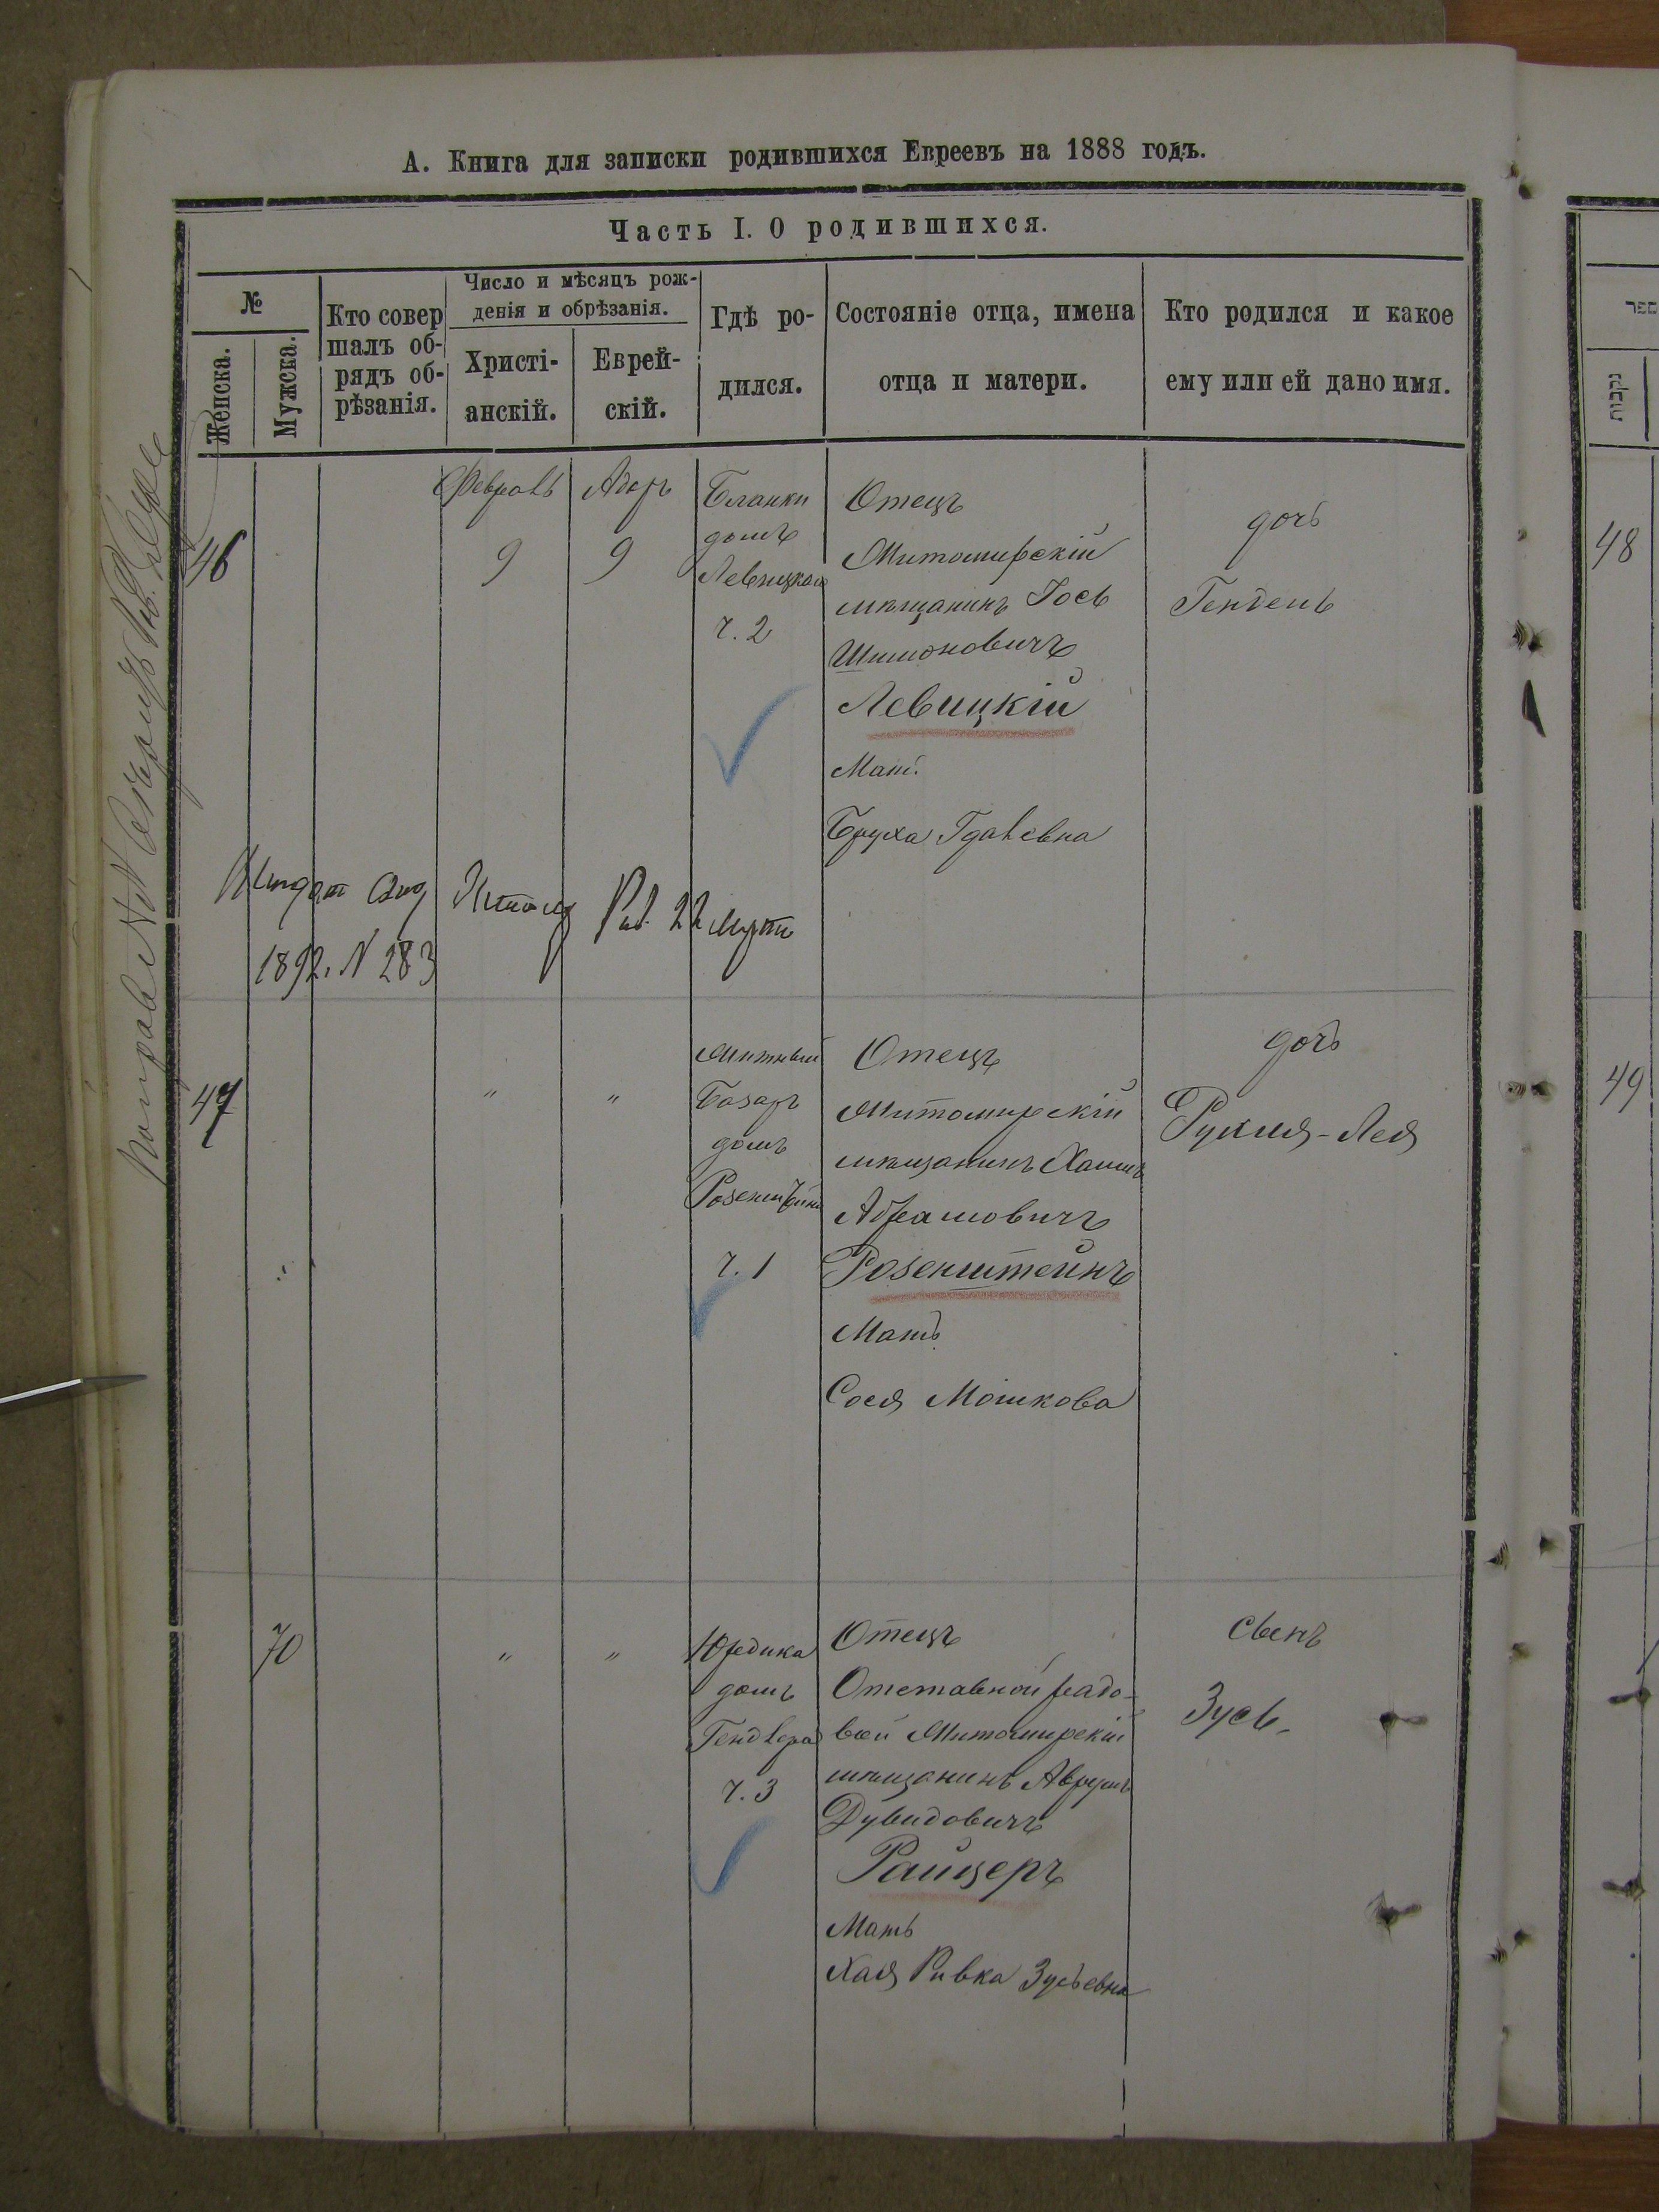 А. Книга для записки родившихся Евреевъ на 1888 годъ.
Часть I. О родившихся.
№
Женска.
Мужска.
Кто совер
шалъ об-
рядъ об-
рѣзанія.
Число и мѣсяцъ рож-
денія и обрѣзанія.
Христі-
анскій.
Еврей-
скій.
Гдѣ ро-
дился.
Состояніе отца, имена
отца и матери.
Кто родился и какое
ему или ей дано имя.
46
Февраль
9
Адаръ
9
домъ
Левицкаго
ч. 2
Отецъ
Житомирскій
мѣщанинъ Іось
Шимоновичъ
Левицкій
Мать
Бруха Гдалевна
дочь
Гендель
22 марта
1892. N 283
47
"
"
Житный
Базаръ
домъ
Розенштейна
ч. 1
Отецъ
Житомирскій
мѣщанинъ Хаимъ
Абрамовичъ
Розенштейнъ
Мать
Сося Мошкова
дочь
Рухля-Лея
70
"
"
Юредика
домъ
ч. 3
Отецъ
Отставной рядо-
вой Житомирскій
мѣщанинъ Аврумъ
Дувидовичъ
Райцеръ
Мать
Хая Ривка Зусьевна
сынъ
Зусь
48
49
ספר
נקבות